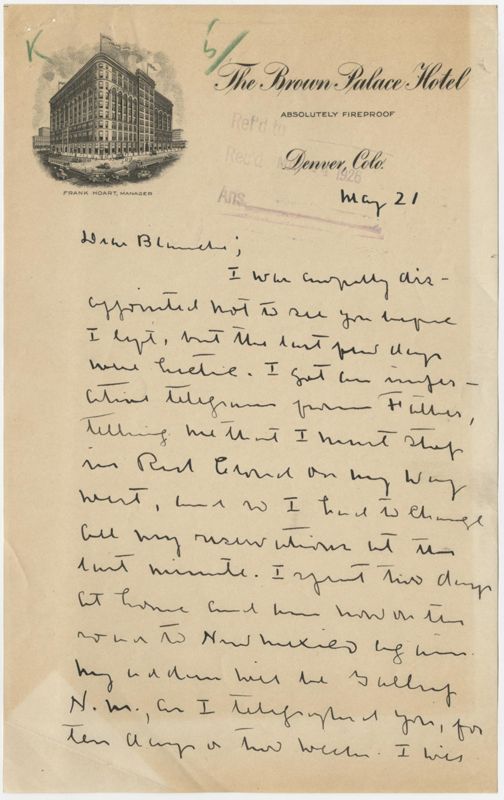 K
5/
The Brown Palace Hotel
ABSOLUTELY FIREPROOF
Ref'd to
Rec'd 1926
Denver, Colo.
Ans.
FRANK HOART, MANAGER
May 21
Dear Blanche;
I was awfully dis-
appointed not to see you before
I left, but the last few days
were hectic. I got an imper-
ative telegram from Father,
telling me that I must stop
in Red Cloud on my way
west, and so I had to change
all my reservations at the
last minute. I spent two days
at home and am now on the
road to New Mexico again.
My address will be Gallup
N.M., as I telegraphed you, for
ten days or two weeks. I will